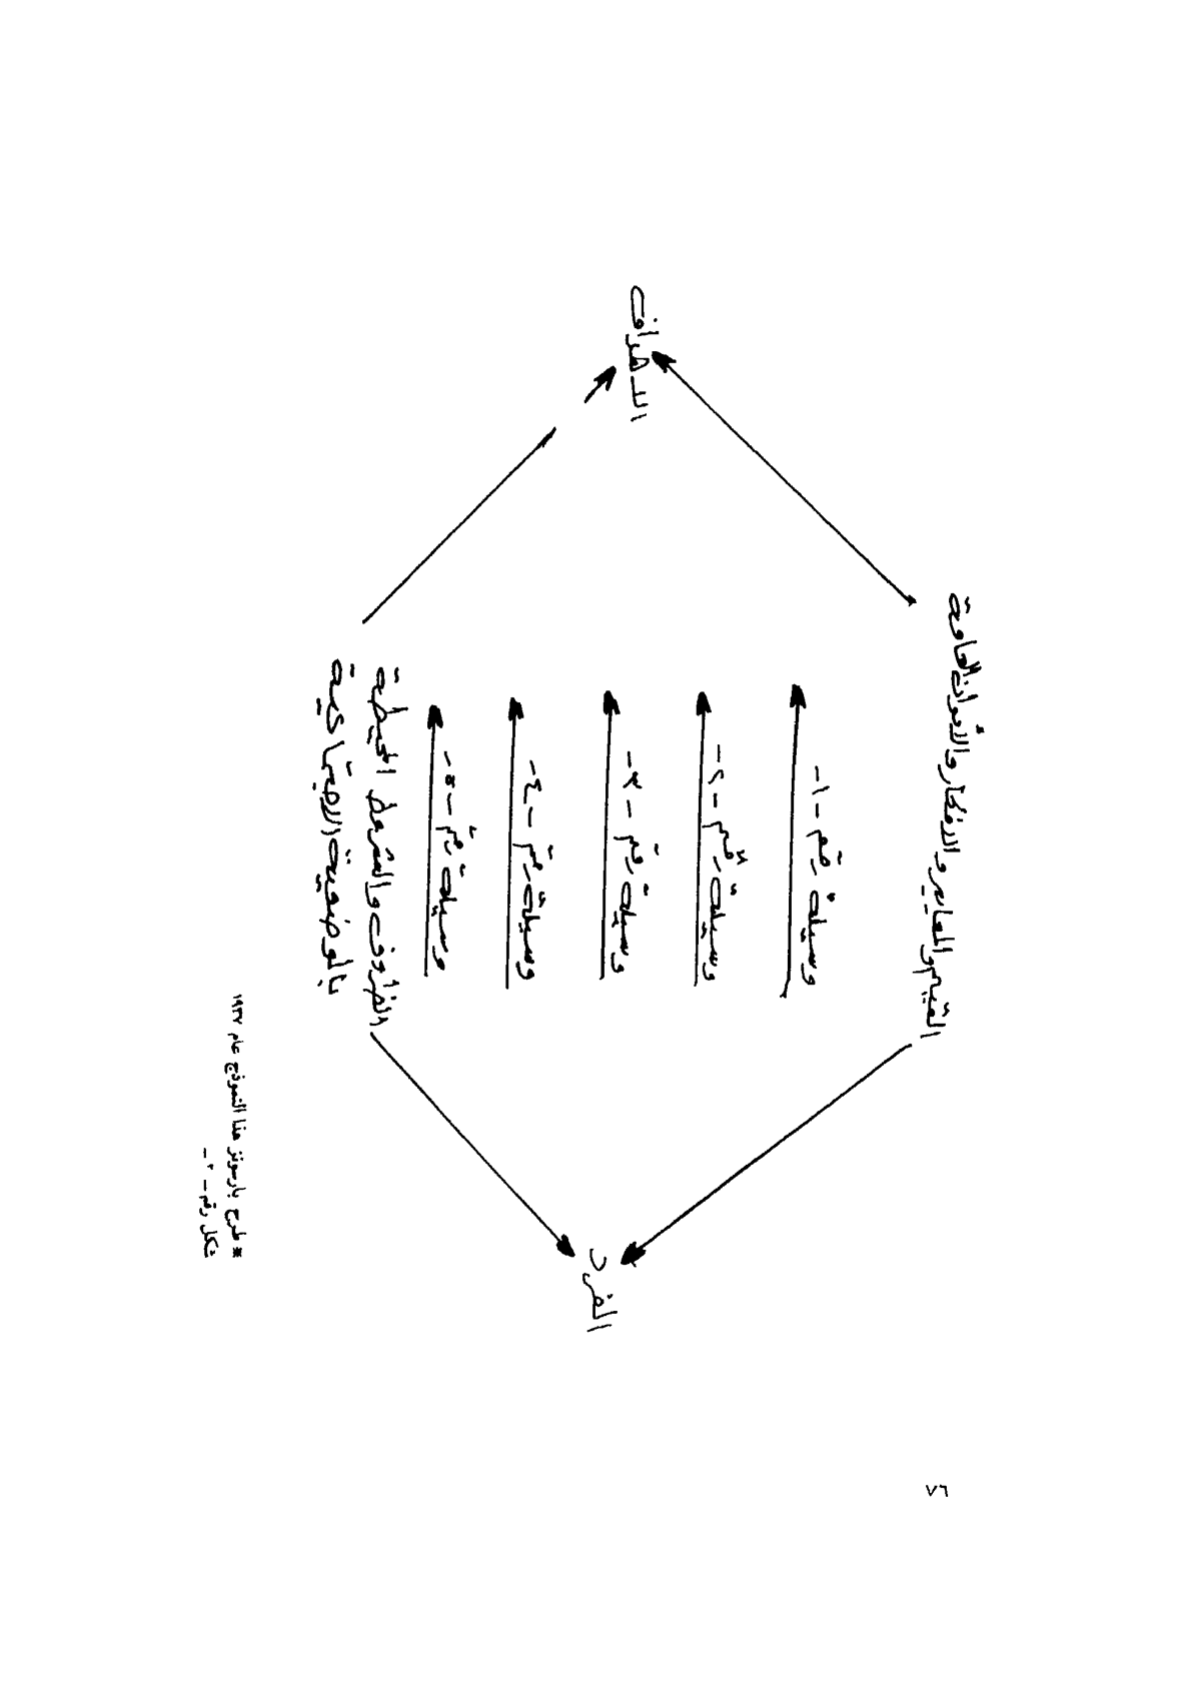 الاهداف
القيم والمعايير والافكار والأذواق العامة
وسيلة رقم -١-
وسيلة رقم -٢-
وسيلة رقم -٣-
وسيلة رقم -٤-
وسيلة رقم -٥-
الظروف والشروط المحيطة
بالوضعية الاجتماعية
الفرد
* طرح بارسونز هذا النموذج عام ١٩٣٧
شكل رقم -٢-
٧٦